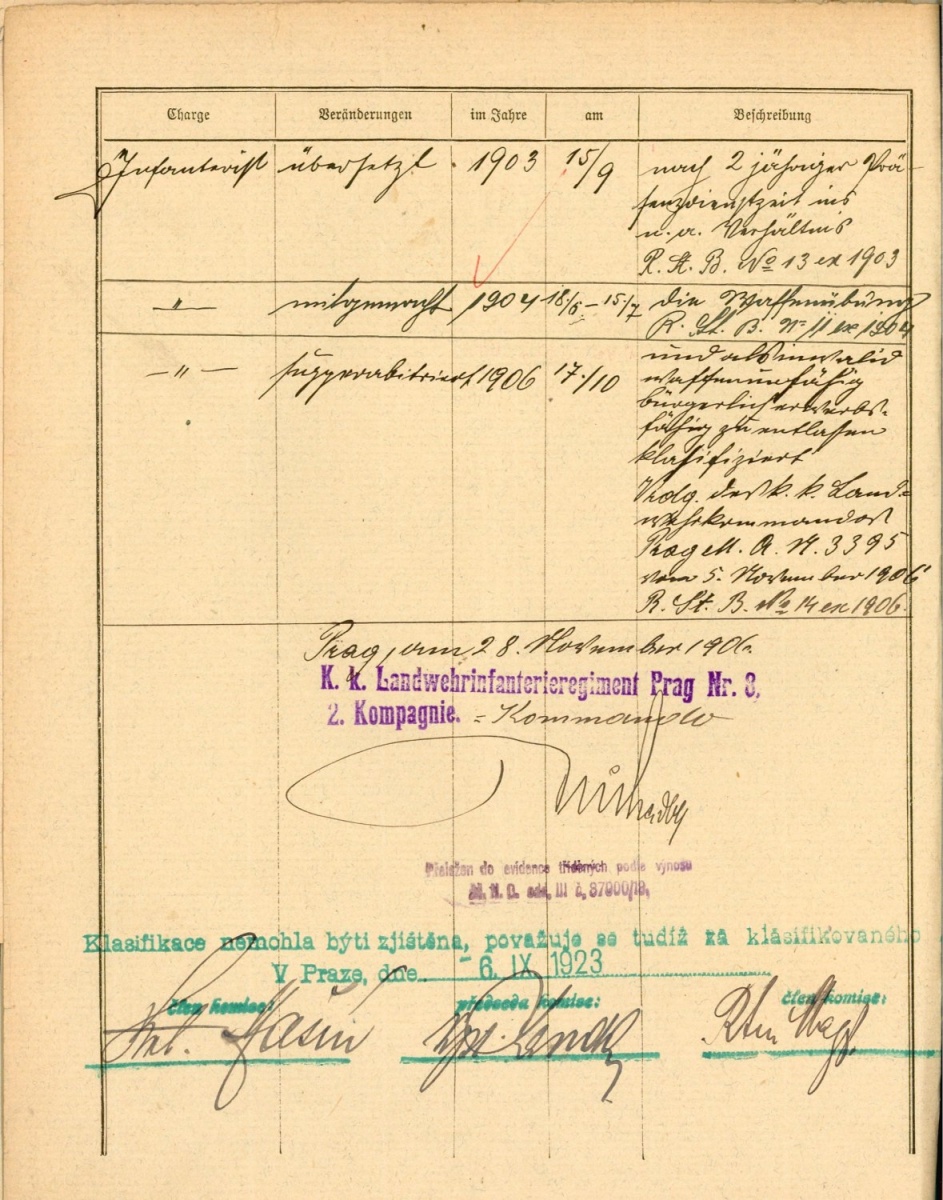 Charge Veränderungen im Jahre am Beschreibung
Infanterist übersetzt 1903 15/9 nach 2 jähriger Prä-
senzdienstzeit ins
n. a. Verhältnis
R. St. B. No 13 ex 1903
—〃— mitgemacht 1904 18./6. – 15./7 die Waffenübung
R. St. B. No 11 ex 1904
—〃— supperabitriert 1906 17./10 und als invalid
waffenunfähig
bürgerlich erwerbs-
fähig zu entlassen
klasifiziert
Vrdg. des k. k. Land=
wehrkommandos
Prag M. A. N. 3395
vom 5. November 1906
R. St. B. No 14 ex 1906.
Prag, am 28. November 1906.
K. k. Landwehrinfanterieregiment Prag Nr. 8,
2. Kompagnie. = Kommando
Přeložen do evidence tříděných podle výnosu
M. N. O. odd. III č. 37900/19,
Klasifikace nemohla býti zjištěna, považuje se tudíž za klasifikovaného
V Praze, dne - 6. IX 1923
člen komise: předseda komise: člen komise: